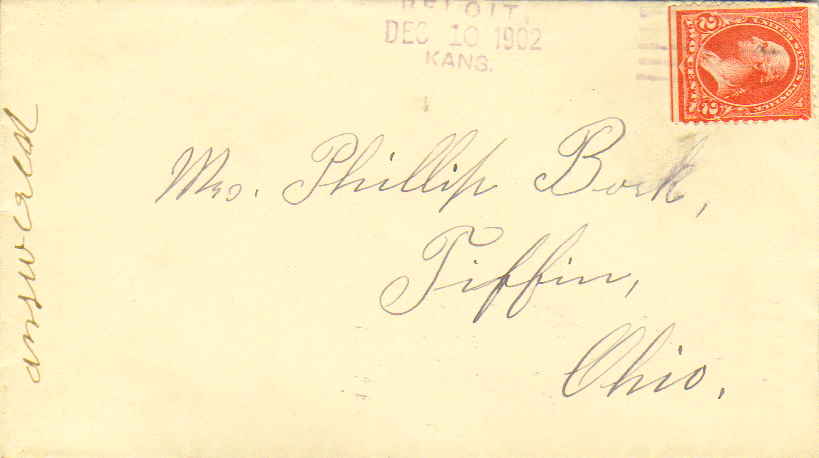 BELOIT,
DEC 10 1902
KANS.
UNITED STATES POSTAGE
2 2
Mrs. Phillip Bork,
Tiffin,
Ohio.
answered